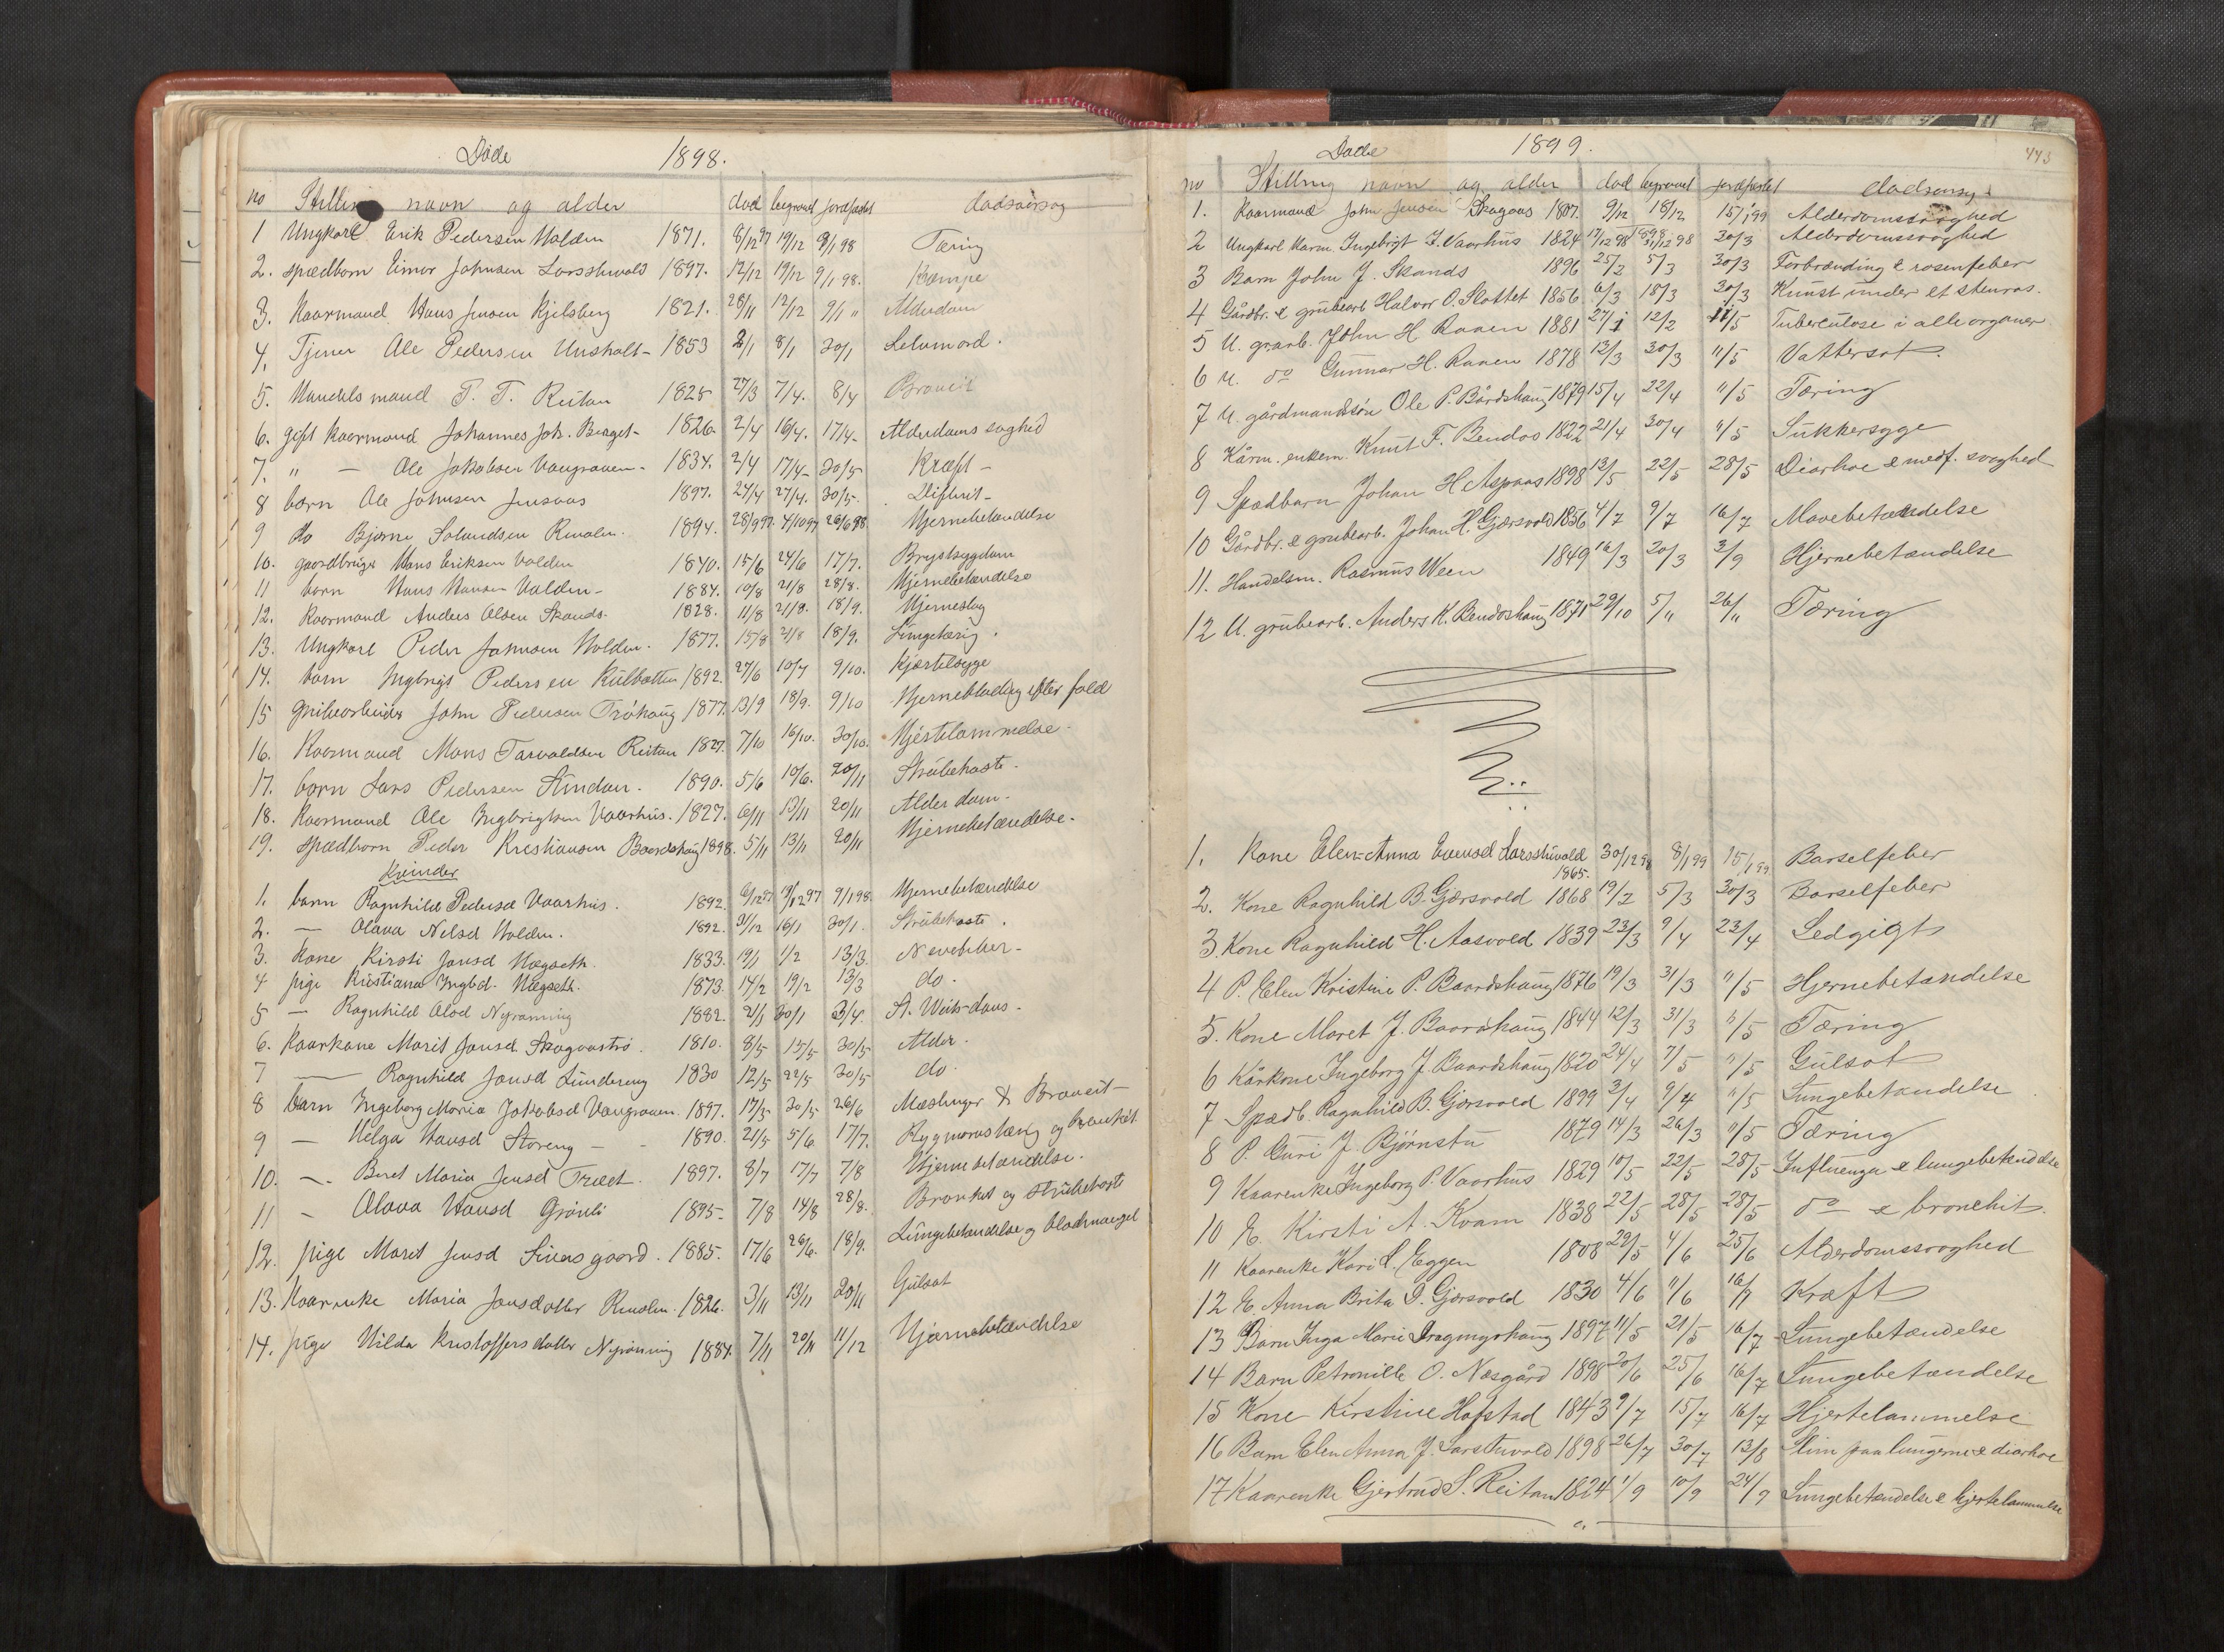 Døde 1898.
no Stilling navn og alder død begravet jordfæstet dødsaarsag
1 Ungkarl Erik Pedersen Volden 1871. 8/12 97 19/12 9/1 98 Tæring
2. spædbarn Einar Johnsen Larsstuvold 1897. 12/12 19/12 9/1 98. Kæmpe
3. Kaarmand Hans Jensen Kjelsberg 1821. 28/11 12/12 9/1 " Alderdom
4. Tjener Ole Pedersen Unsholt- 1853 2/1 8/1 30/1 Selvmord.
5. Handelsmand T. T. Reitan 1825 27/3 7/4. 8/4
6. gift kaarmand Johannes Joh. Berget- 1826. 2/4 16/4. 17/4- Alderdoms svaghed
7. " — Ole Jakobsen Vangraven- 1834. 2/4 17/4- 30/5 Kræft-
8 barn Ole Johnsen Jensaas 1897. 24/4 27/4. 30/5. Difterit-
9 do Bjarne Salandsen Renolen. 1894. 28/9 97. 4/10 97 26/6 98. Hjernebetændelse
10. gaardbruger Hans Eriksen Volden 1840. 15/6 24/6 17/7. Brystsygdom
11 barn Hans Hansen Volden- 1884. 10/8 21/8 28/8. Hjernebetændelse
12. Kaarmand Anders Olsen Skands. 1828. 11/8 21/8. 18/9. Hjerneslag
13. Ungkarl Peder Johnsen Volden. 1877. 15/8 21/8 18/9. Lungetæring.
14. barn Ingbrigt Pedersen Kulbotten 1892. 27/6 10/7 9/10. Kjertelsyge
15 Grubearbeider John Pedersen Trøhaug 1877. 13/9 18/9. 9/10 Hjerneblødning efter fald
16. Kaarmand Mons Tarvaldsen Reitan 1827. 7/10 16/10. 30/10. Hjertelammelse-
17. barn Lars Pedersen Stindan. 1890. 5/6 10/6. 20/11 Strubehoste.
18. Kaarmand Ole Ingbrigtsen Vaarhus. 1827. 6/11 13/11 20/11 Alderdom-
19. spædbarn Peder Kristiansen Baardshaug 1898. 5/11 13/11 20/11 Hjernebetændelse-
Kvinder
1. barn Ragnhild Pedersd Vaarhus. 1892. 6/12 97 13/12 97 9/1 98. Hjernebetændelse
2. — Olava Nilsd Volden. 1892. 31/12 16/1 30/1. Strubehoste.
3. Kone Kirsti Jonsd Hægseth. 1833. 19/1 1/2 13/3. Nervefeber-
4 pige Kristiana Ingbd. Hægseth. 1873. 14/2 19/2 13/3 do.
5 — Ragnhild Olsd Nyrønning 1882. 21/1 30/1 3/4. St. Veits-dans-
6. Kaarkone Marit Jonsd. Skogaastrø. 1810. 8/5 15/5 30/5 Alder.
7 — Ragnhild Jonsd Lundereng 1830 12/5 22/5 30/5 do.
8 barn Ingeborg Maria Jakobsd Vangraven. 1897. 17/5 30/5 26/6 Mæslinger & Broncit-
9 — Helga Hansd Storeng — 1890. 21/5 5/6. 17/7. Rygmarvstæring og Bronkit.
10. — Beret Maria Jensd Træet. 1897. 8/7 17/7 7/8 Hjernebetændelse.
11 — Olava Hansd Grønli 1895- 7/8 14/8 28/8. Bronkit og strubehoste
12. pige Marit Jensd Siversgaard. 1885. 17/6 26/6. 18/9. Lungebetændelse og blodmangel
13. Kaarenke Maria Jonsdatter Renolen. 1826. 3/11 13/11 20/11 Gulsot
14. pige Hilda Kristoffersdatter Nyrønning 1884. 7/11 20/11 11/12 Hjernebetændelse
Døde 1899. 443
no Stilling navn og alder død begravet jordfæstet dødsaarsag
1. Kaarmand John Jensen Skogaas 1807. 9/12 18/12 15/1 99 Alderdomssvaghed
2 Ungkarl Kaarm. Ingebrigt J. Vaarhus 1824 17/12 98 31/12 98 30/3 Alderdomssvaghed
3 Barn John J. Skands 1896 25/2 5/3 30/3 Forbrænding & rosenfeber
4 Gårdbr. & grubearb Halvor O. Slottet 1856 6/3 18/3 30/3 Knust under et stenras.
5 U. grarb. John H. Raaen 1881 27/1 12/2 11/5 Tuberculose i alle organer
6 U. do Gunnar H. Raaen 1878 12/3 30/3 11/5 Vattersot.
7 U. gårdmandssøn Ole P. Bårdshaug 1879 15/4 22/4 11/5 Tæring
8 Kårm. enkem. Knut F. Bendos 1822 21/4 30/4 11/5 Sukkersyge
9 Spædbarn Johan H Aspaas 1898 12/5 22/5 28/5 Diarhoe & medf. svaghed
10 Gårdbr. & grubearb. Johan H. Gjærsvold 1856 4/7 9/7 16/7 Mavebetændelse
11. Handelsm. Rasmus Ween 1849 16/3 20/3 3/9 Hjernebetændelse
12 U. grubearb. Anders K. Bendoshaug 1871 29/10 5/11 26/11 Tæring
1. Kone Elen-Anna Evensd Larsstuvold 1865. 30/12 98 8/1 99 15/1 99 Barselfeber
2. Kone Ragnhild B. Gjærsvold 1868 19/2 5/3 30/3 Barselfeber
3. Kone Ragnhild H. Aasvold 1839 23/3 9/4 23/4 Ledgigt
4 P. Elen Kristine P. Baardshaug 1876 19/3 31/3 11/5 Hjernebetændelse
5. Kone Maret J. Baardshaug 1844 12/3 31/3 11/5 Tæring
6 Kårkone Ingeborg J. Baardshaug 1820 24/4 7/5 11/5 Gulsot
7 Spædb. Ragnhild B. Gjærsvold 1899 3/4 9/4 11/5 Lungebetændelse
8 P. Guri J. Bjørnstu 1879 14/3 26/3 11/5 Tæring
9 Kaarenke Ingeborg P. Vaarhus 1829 10/5 22/5 28/5 Influenza & lungebetændelse
10 E. Kirsti A. Kvam 1838 22/5 28/5 28/5 do & bronchit.
11 Kaarenke Kari L. Eggen 1808 29/5 4/6 25/6 Alderdomssvaghed
12 E. Anna Brita I. Gjærsvold 1830 4/6 11/6 16/7 Kræft
13 Barn Inga Marie Dragmyrhaug 1897 11/5 21/5 16/7 Lungebetændelse
14 Barn Petronille O. Næsgård 1898 20/6 25/6 16/7 Lungebetændelse
15 Kone Kirstine Hofstad 1843 9/7 15/7 16/7 Hjertelammelse
16 Barn Elen Anna J. Larsstuvold 1898 26/7 30/7 13/8 Slim paa lungerne & diarhoe
17 Kaarenke Gjertrud S. Reitan 1824 1/9 10/9 24/9 Lungebetændelse & hjertelammelse